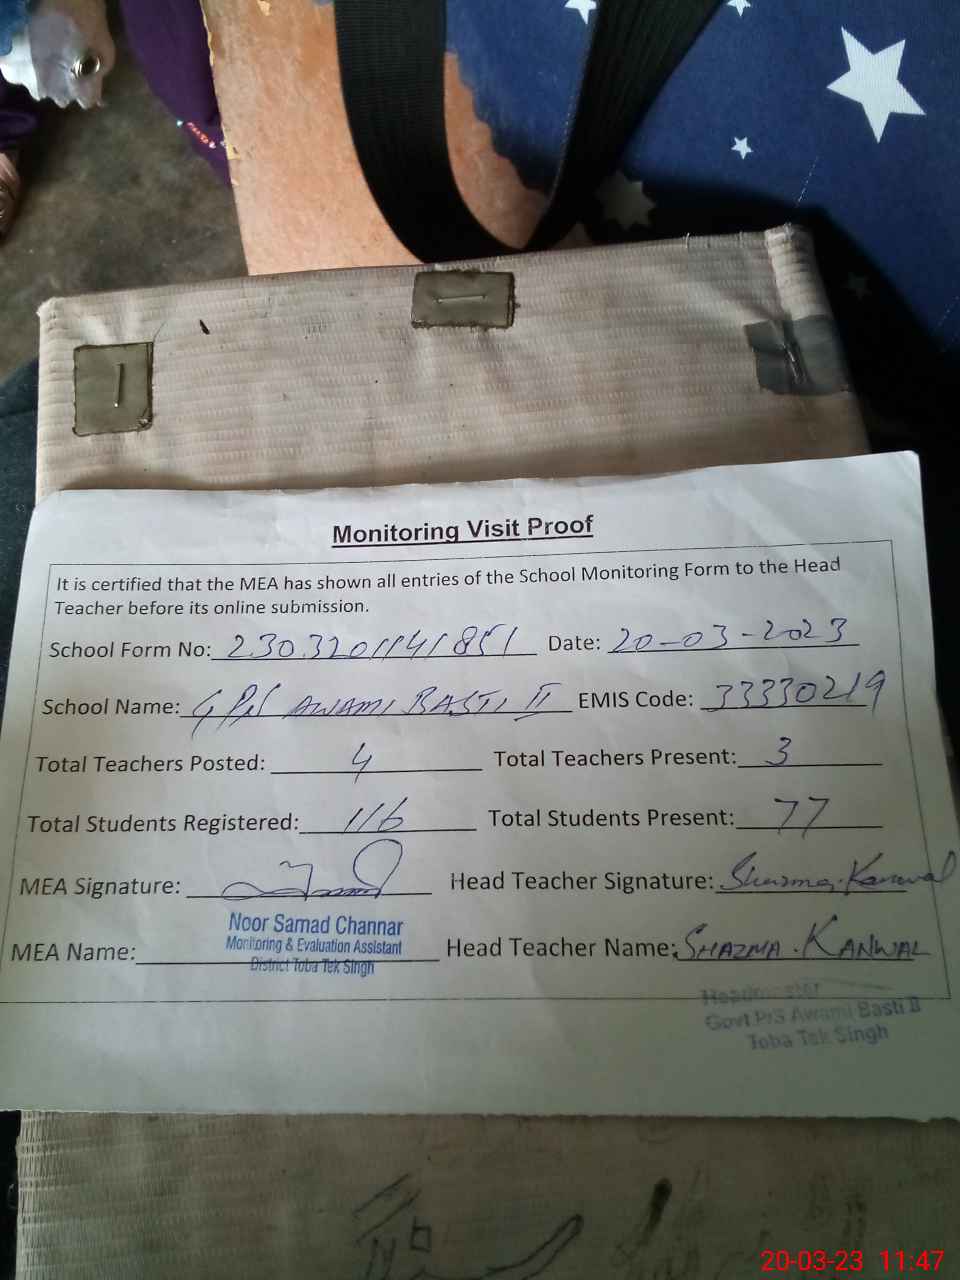 Monitoring Visit Proof
It is certified that the MEA has shown all entries of the School Monitoring Form to the Head
Teacher before its online submission.
School Form No: 2303201141851 Date: 20-03-2023
School Name: GPS AWAMI BASTI II EMIS Code: 33330219
Total Teachers Posted: 4 Total Teachers Present: 3
Total Students Registered: 116 Total Students Present: 77
MEA Signature: Head Teacher Signature: Shazma.Kanwal
MEA Name: Noor Samad Channar Head Teacher Name: SHAZMA.KANWAL
Monitoring & Evaluation Assistant
District Toba Tek Singh
Headmaster
Govt.P/S Awami Basti II
Toba Tek Singh
20-03-23 11:47